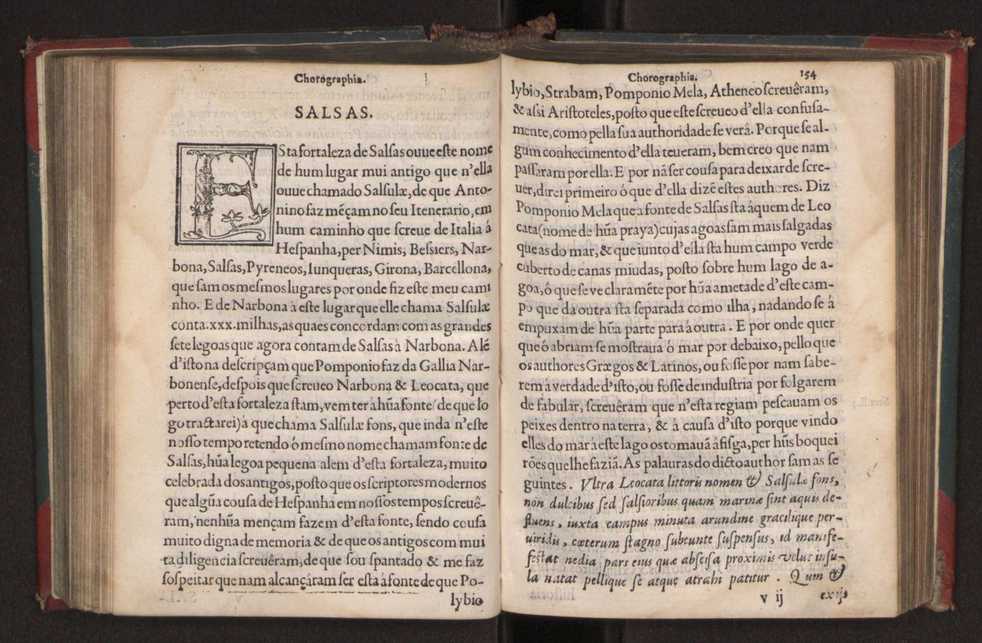 Chorographia.
SALSAS.
ESta fortaleza de Salsas ouue este nome
de hum lugar mui antigo que n'ella
ouue chamado Salsulæ, de que Anto-
nino faz mẽçam no seu Itenerario, em
hum caminho que screue de Italia à
Hespanha, per Nimis, Bessiers, Nar-
bona, Salsas, Pyreneos, Iunqueras, Girona, Barcellona,
que sam os mesmos lugares por onde fiz este meu cami
nho. E de Narbona à este lugar que elle chama Salsulæ
conta .xxx. milhas, as quaes concordam com as grandes
sete legoas que agora contam de Salsas à Narbona. Alẽ
d'isto na descripçam que Pomponio faz da Gallia Nar-
bonense, despois que screueo Narbona & Leocata, que
perto d'esta fortaleza stam, vem ter à hũa fonte (de que lo
go tractarei) à que chama Salsulæ fons, que inda n'este
nosso tempo retendo ò mesmo nome chamam fonte de
Salsas, hũa legoa pequena alem d'esta fortaleza, muito
celebrada dos antigos, posto que os scriptores modernos
que algũa cousa de Hespanha em nossos tempos screuê-
ram, nenhũa mençam fazem d'esta fonte, sendo cousa
muito digna de memoria & de que os antigos com mui
ta diligencia screuêram, de que sou spantado & me faz
sospeitar que nam alcançâram ser esta à fonte de que Po-
lybio
Chorographia. 154
lybio, Strabam, Pomponio Mela, Atheneo screuêram,
& assi Aristoteles, posto que este screueo d'ella confusa-
mente, como pella sua authoridade se verà. Porque se al-
gum conhecimento d'ella teueram, bem creo que nam
passàram por ella. E por nã ser cousa para deixar de scre-
uer, direi primeiro ò que d'ella dizẽ estes authores. Diz
Pomponio Mela que a fonte de Salsas sta àquem de Leo
cata (nome de hũa praya) cujas agoas sam mais salgadas
que as do mar, & que iunto d'ella sta hum campo verde
cuberto de canas miudas, posto sobre hum lago de a-
goa, ò que se ve claramẽte por hũa ametade d'este cam-
po que da outra sta separada como ilha, nadando se à
empuxam de hũa parte para à outra. E por onde quer
que ò abriam se mostraua ò mar por debaixo, pello que
os authores Græegos & Latinos, ou fosse por nam sabe-
rem à verdade d'isto, ou fosse de industria por folgarem
de fabular, screuêram que n'esta regiam pescauam os
peixes dentro na terra, & à causa d'isto porque vindo
elles do mar à este lago os tomauã à fisga, per hũs boquei
rões que lhe faziã. As palauras do dicto author sam as se
guintes. Vltra Leocata littoris nomen & Salsulæ fons,
non dulcibus sed salsioribus quam marinæ sint aquis de-
fluens, iuxta campus minuta arundine gracilique per-
uiridis, cæterum stagno subeunte suspensus, id manife-
festat media pars eius quæ abscisa proximis velut insu-
la natat pellique se atque atrahi patitur. Quin &
v ij exijs